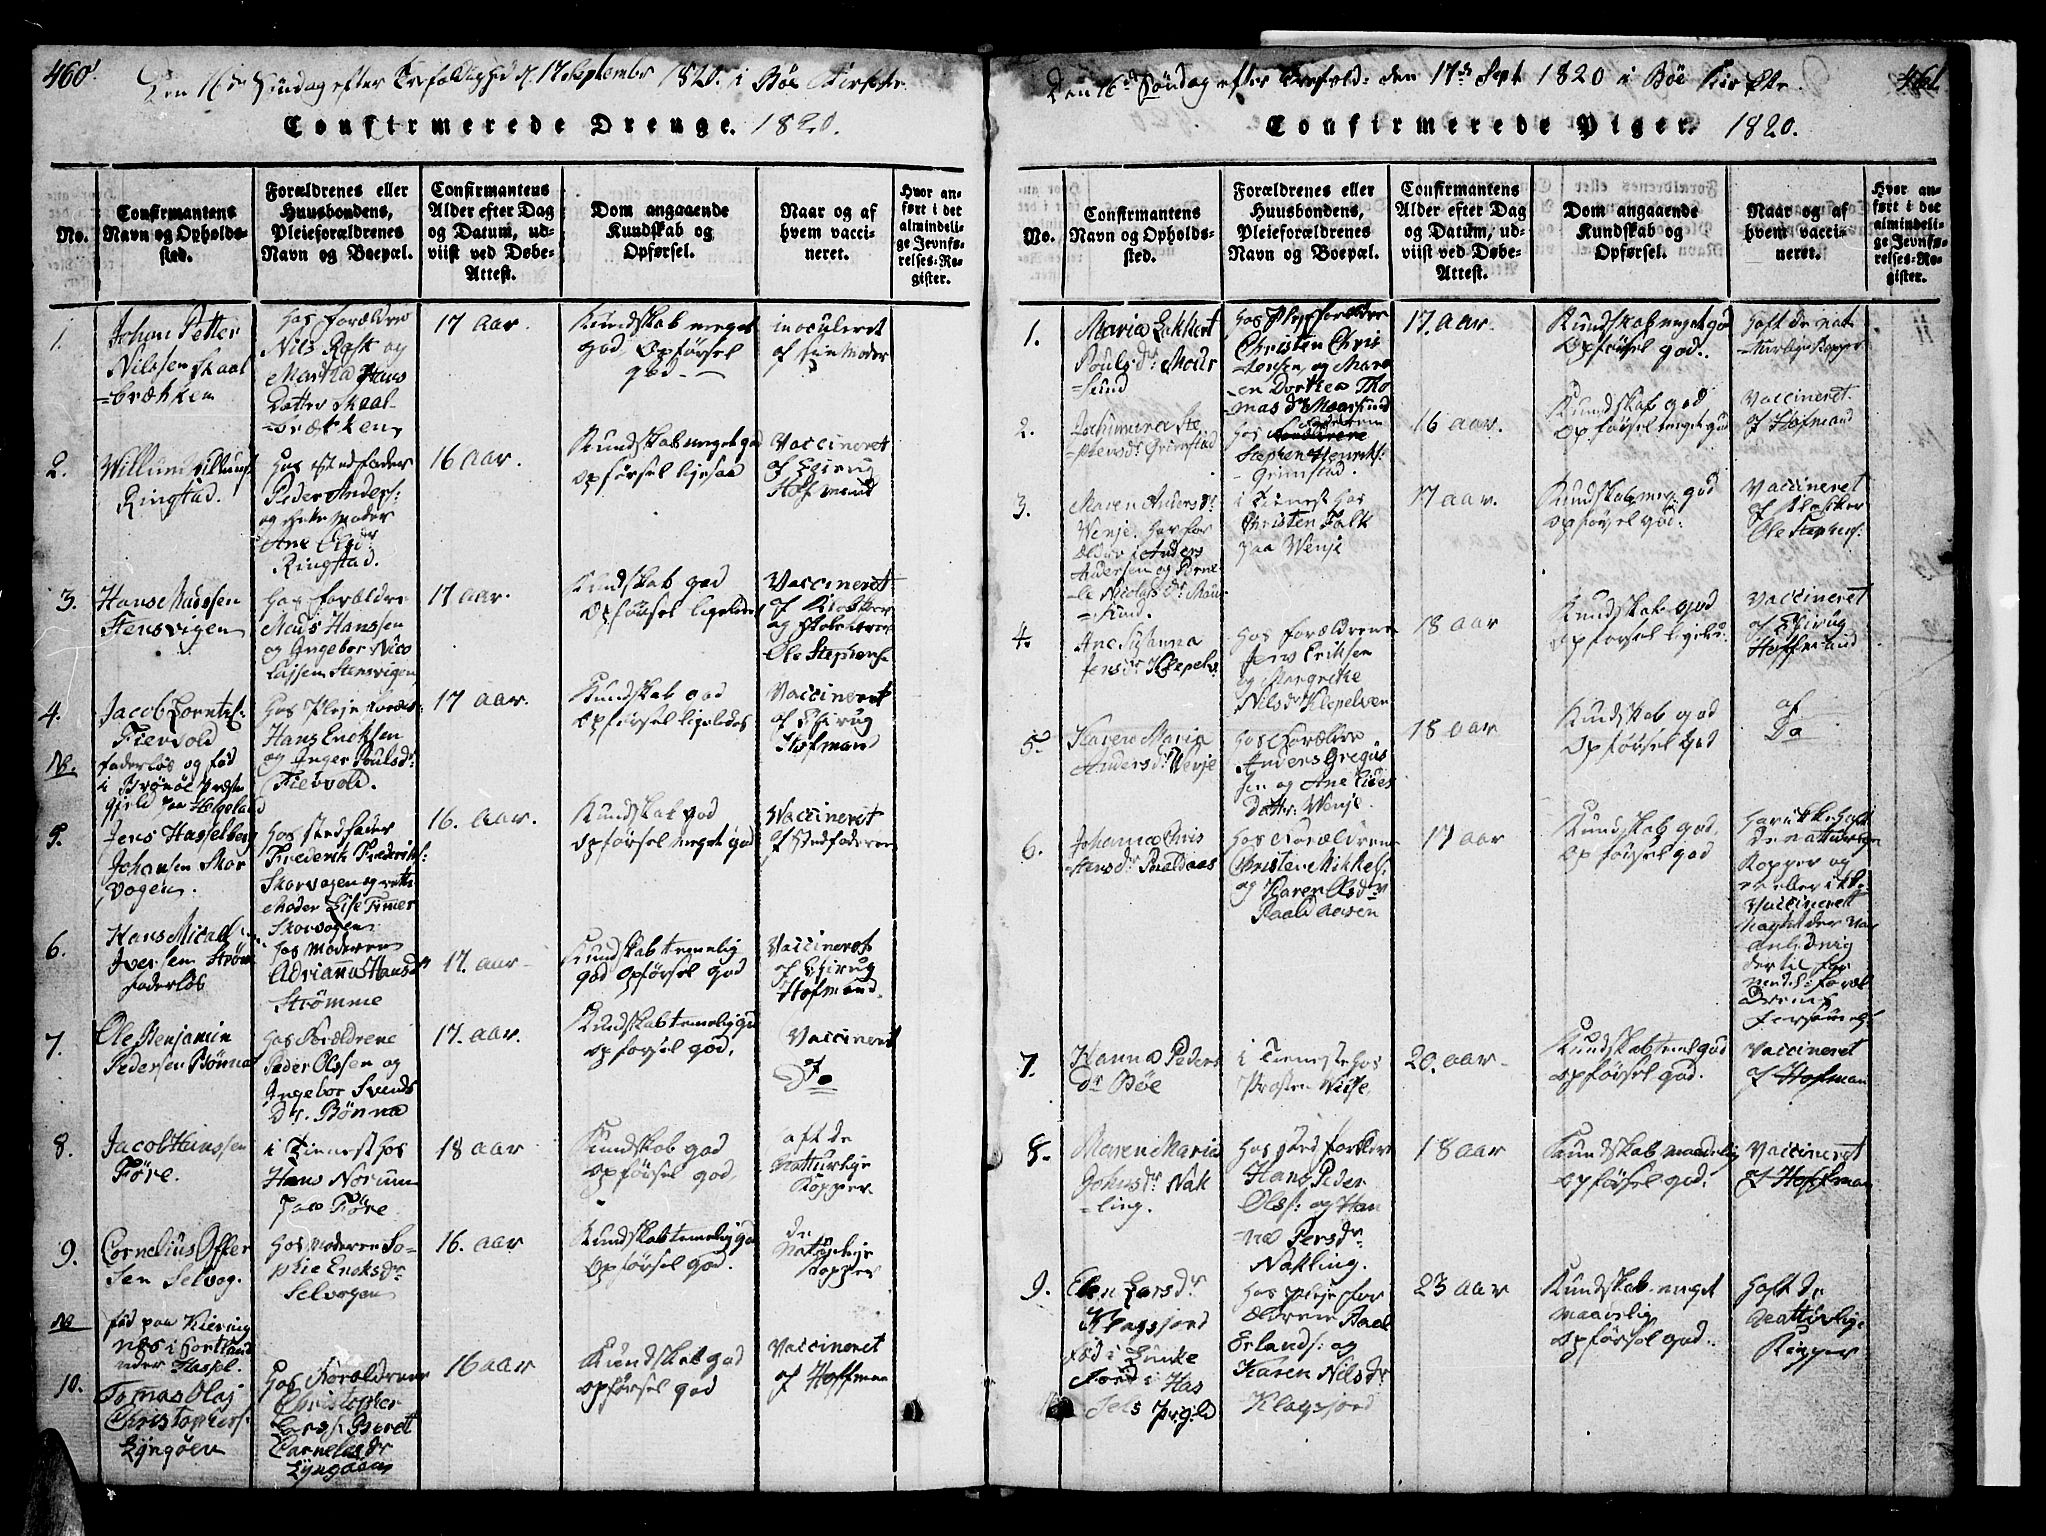 460.
Den 16de Søndag efter Trefoldighd d. 17 September 1820. i Böe Kirche
Confirmerede Drenge. 1820.
No.
Confirmantens
Navn og Opholds-
sted.
Forældrenes eller
Huusbondens,
Pleieforældrenes
Navn og Boepæl.
Confirmantens
Alder efter Dag
og Datum, ud-
viist ved Døbe-
Attest.
Dom angaaende
Kundskab og
Opførsel.
Naar og af
hvem vacci-
neret.
Hvor an-
ført i det
almindeli-
ge Jevnfø-
relses-Re-
gister.
1.
Johan Petter
Nilssen Skaal
-brækken
hos forældre
Nils Rask og
Martha Hans
Datter Skaal-
-brækken
17 Aar.
Kundskab meget
god, Opförsel
god
inoculeret
af sin Moder
2.
Willum Willums:
Ringstad.
hos stedfader
Peder Anders:
og Moder
Ane
Ringstad.
16 Aar.
Kundskab meget god
opförsel ligesaa
Vaccineret
af Chirug
Hofmand
3.
Hans Madssen
Stensvigen
hos forældre
Mads Hanssen
og Ingebor Nico
Stensvigen
17 aar.
Kundskab god
Opförsel ligeledes
Vaccineret
af Klokker
og Skolelærer
Ole Stephens:
4.
Jacob Lorents:
Fievold
NB.
faderløs og föd
i Brönöe Præste
gjeld paa Helgeland
hos Pleje
Hans Ericksen
og Inger Poulsdr:
Fievold.
17 aar.
Kundskab god
opförsel ligeledes
Vaccineret
af Chirug
Hofmand
5.
Jens Hasselberg
Johansen Skor
vogen.
hos stedfader
Frederik Frederiks:
Skorvogen og rette
Moder Lise
Skorvogen
16. aar.
Kundskab god
opförsel meget god
Vaccineret
af Stedfaderen
6.
Hans Micael
Iversen Ström
faderløs
hos Moderen
Adrianna Hansdr
Strömme
17. aar
Kundskab temelig
god opförsel god
Vaccineret
af Chirug
Hofmand.
7.
Ole Benjamin
Pedersen Bönna
hos forældrene
Peder Olssen og
Ingebor Svends
Dr. Bönna
17. aar.
Kundskab temelig god
opforsel god.
Vaccineret
af
Do
8.
Jacob Hanssen
Före.
i Tienest hos
Hans Norum
paa Före.
18 aar
Kundskab god
opförsel god,
aft de
Natturlige
Kopper
9.
Cornelius Offer
Sen Selvog.
NB
föd paa Kiering
næs i Sortland
under Hassel.
hos Moderen So-
phie Ericksdr
Selvogen
16. aar
Kundskab temelig god
opförsel god.
de
Naturlige
Kopper
10.
Tomas Olaj
Christophers:
Lyngöen
hos Forældrene
Christopher
Larss: Berett
Cornelesdr
Lyngöen
16 aar
Kundskab god
opförsel god
Vaccineret
af Hoffman
461.
Den 16de Söndag efter Trefold: den 17de Sept 1820 i Böe Kirke
Confirmerede Piger. 1820.
No.
Confirmantens
Navn og Opholds-
sted.
Forældrenes eller
Huusbondens,
Pleieforældrenes
Navn og Boepæl.
Confirmantens
Alder efter Dag
og Datum, ud-
viist ved Døbe-
Attest.
Dom angaaende
Kundskab og
Opførsel.
Naar og af
hvem vacci-
neret.
Hvor an-
ført i det
almindeli-
ge Jevnfø-
relses-Re-
gister.
1.
Maria
Poulsdr:
-sund
hos Plejeforældre
Christen Chris
-tensen, og Mare
-en Dorthea Tho
masdr Maarsund
17. aar.
Kundskab meget god
Opförsel god.
haft de nat
-turlige Kopper
2.
Jochimina Ste
-phensdr Grimstad
hos
Stephen Henriks:
Grimstad.
16 aar.
Kundskab god
opförsel meget god
Vaccineret.
af Hofmand
3.
Maren Andersdr
Wenje. har for
ældre Anders
Andersen og Perne
-le Nicolajsdr
-sund.
i Tienest hos
Christen Falk
paa Wenje
17 aar.
Kundskab meg: god
opförsel god:
Vaccineret
af Klokker
Ole Stephens:
4.
Ane Susanna
Jensdr Klepelv
hos forældrene
Jens Eriksen
og Margrethe
Nilsdr Klepelven
18 aar
Kundskab god
opförsel ligeled:
Vaccineret
af Chirug
Hoffmand
5.
Karen Maria
Andersdr Wenje
hos Forældre
Anders Gregus
sen og Ane
Datter. Wenje.
18 aar
Kundskab god
opförsel god
af
Do
6.
Johanna Chris
-tensdr Paaldaas
hos Forældrene
Christen Mikkels:
og Karen Olsdr
Paaldaasen
17 aar
Kundskab god.
opförsel god
har ikke haft
de natturlige
Kopper og
er eller ikke
Vaccineret
der var
anledning
dertil for
medelst foræl
drenes
forsömel:
7.
Hanna Peders
Dr Böe
i Tieneste hos
Prosten
20. aar
Kundskab temel: god
opförsel god.
Vaccineret
af Hofman
8.
Maren Maria
Johnsdr Nak
-ling.
hos sted forældre
Hans Peder
Olss: og Han
-na Persdr
Nakling.
18 aar
Kundskab maadelig
opförsel god.
Vaccineret
af Hoffman
9.
Elen Larsdr
Klagsjord
Föd i
Fiord i Has
sels Pr:gild
hos pleje for
ældrene Paal
Erlands: og
Karen Nilsdr
Klagsjord
23 aar
Kundskab meget
maadelig
opförsel god.
haft de
Natturlige
Kopper